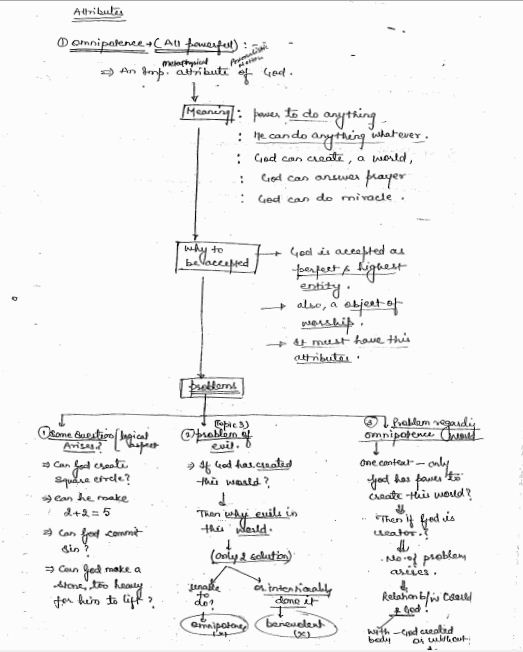 Attributes
① omnipotence → (All powerful) :
metaphysical
⇒ An Imp. attribute of God.
Meaning : power to do anything
: He can do anything whatever.
: God can create, a world,
: God can answer prayer
: God can do miracle.
why to
be accepted
→ God is accepted as
perfect & highest
entity.
→ also, a object of
worship.
→ It must have this
attributes.
problems
① Some Question
Arises?
logical
aspect
⇒ Can God create
square circle?
⇒ can he make
2+2=5
⇒ Can God commit
sin?
⇒ Can God make a
stone, too heavy
for him to lift?
(Topic 3)
② problem of
evil.
⇒ If God has created
this world?
Then why evils in
this world.
(only 2 solution)
unable
to
do?
omnipotence
(x)
or intentionally
done it
benevolent
(x)
③ Problem regardi
omnipotence
world
one context – only
God has power to
create this world?
Then if God is
creator?
No. of problem
arises.
Relation b/w
& God.
with
body
God created
or without